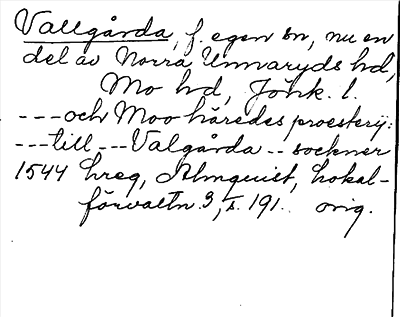 Vallgårda, f. egen sn, nu en
del av Norra Unnaryds hd,
Mo hd, Jönk. l.
---och Moo häredes proesterij:
---till---Valgårda -- sockner
1544 hreg, Almquist, Lokal-
förvaltn. 3, s. 191. orig.